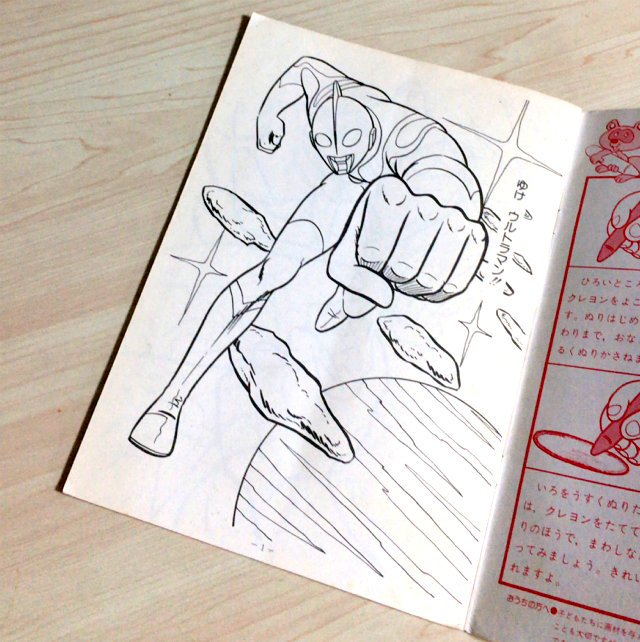 ゆけ ウルトラマン!!
-1-
ひろいところ
クレヨンをよ
す。ぬりはじめ
わりまで、おな
るくぬりかさねま
いろをうすくぬりた
は、クレヨンをたてて
りのほうで、まわしな
ってみましょう。きれい
れますよ。
おうちの方へ●子どもたちに画材を与
ことも大切です